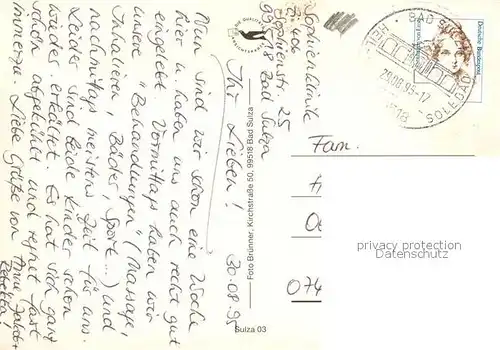 Sophienklinik
Sophienstr. 25
99518 Bad Sulza
30.08.95
Ihr Lieben!
Nun sind wir schon eine Woche
hier u. haben uns auch recht gut
eingelebt. Vormittags haben wir
unsere "Behandlungen" (Massage,
Inhalieren, Bäder, Sport...) und
nachmittags meistens Zeit für uns.
Leider sind beide Kinder schon
wieder erkältet. Es hat sich ganz
schön abgekühlt und regnet fast
immerzu. Liebe Grüße von Anne, Jakob+
Rebekka!
Foto Brünner, Kirchstraße 50, 99518 Bad Sulza
Sulza 03
Deutsche Bundespost
BAD SULZA
SOLEBAD
29.08.95-17
Fam.
074
privacy protection
watermark